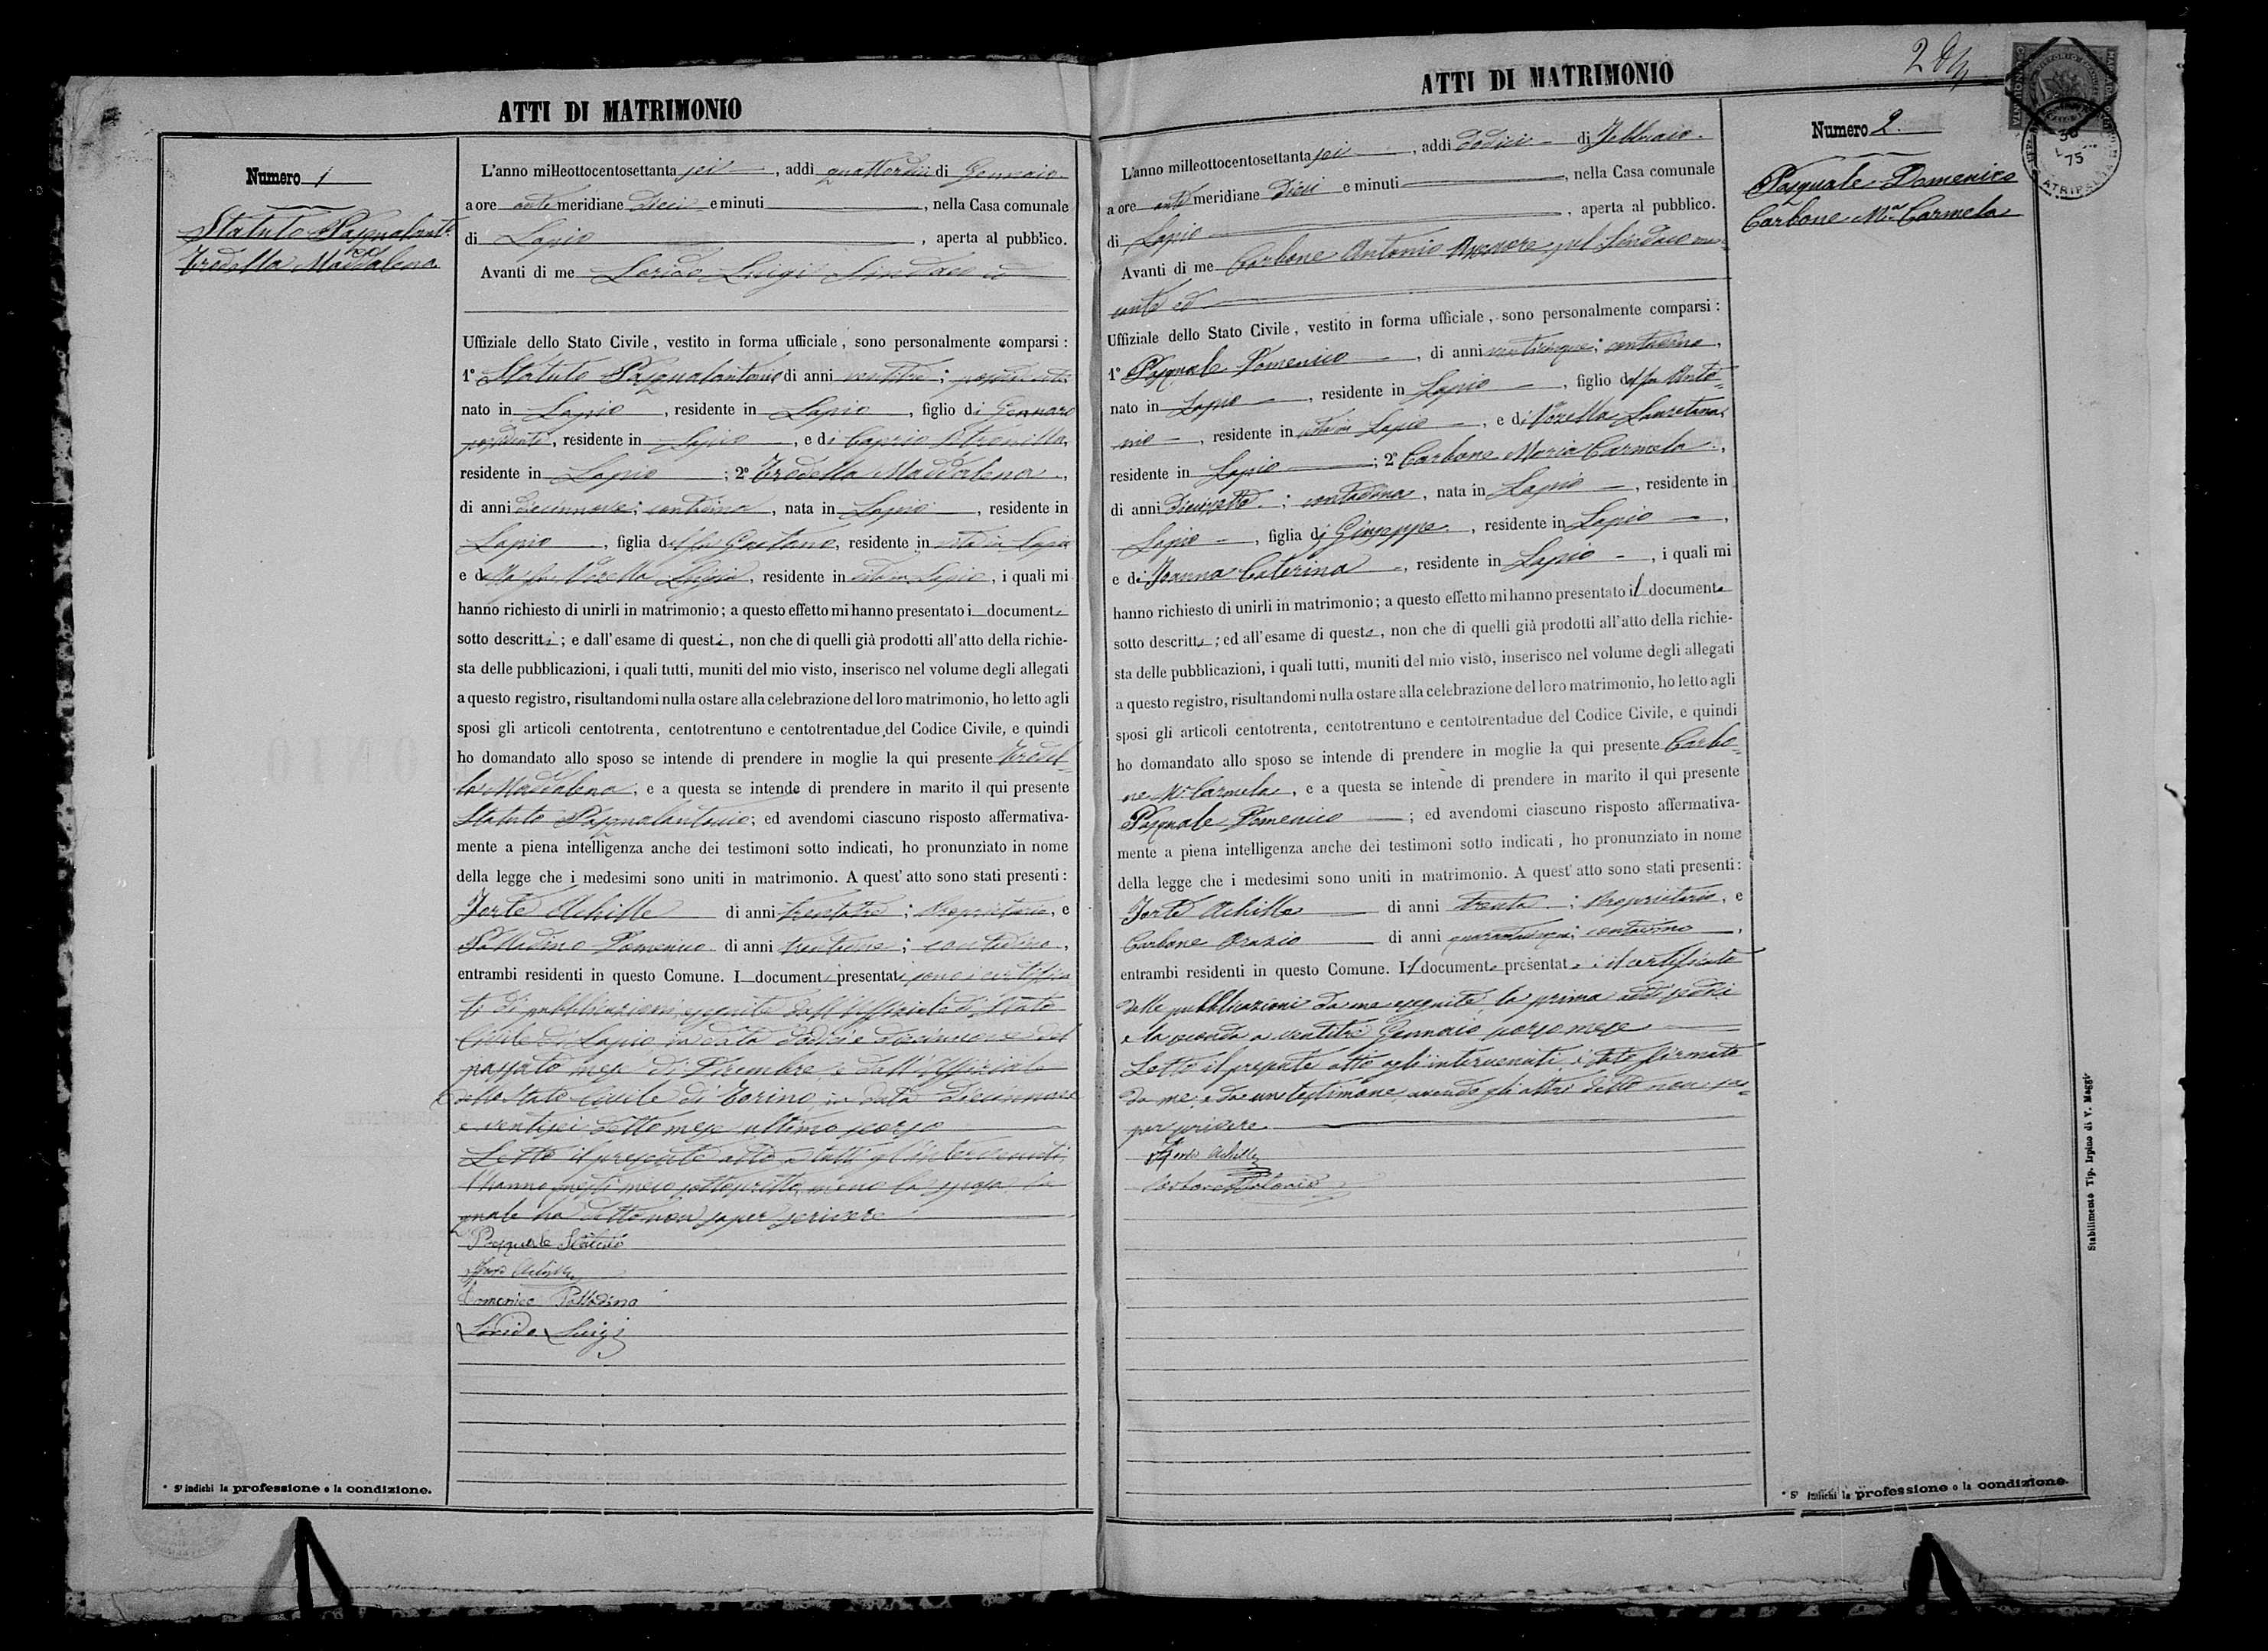 ATTI DI MATRIMONIO
Numero 1
Statuto Pasqualant.
Trodella Maddalena
L'anno milleottocentosettanta sei, addì quattordici di Gennaio
a ore anti meridiane Dieci e minuti, nella Casa comunale
di Lapio, aperta al pubblico.
Avanti di me Luigi Sindaco ed
Uffiziale dello Stato Civile, vestito in forma ufficiale, sono personalmente comparsi:
1° Statuto Pasqualantonio di anni ventitre;
nato in Lapio, residente in Lapio, figlio di Gennaro
residente in Lapio, e di Caprio Petronilla,
residente in Lapio; 2° Trodella Maddalena,
di anni diecinnove; contadina, nata in Lapio, residente in
Lapio, figlia del fu Gaetano, residente in vita in Lapio
e della fu Vozella, residente in vita in Lapio, i quali mi
hanno richiesto di unirli in matrimonio; a questo effetto mi hanno presentato i documenti
sotto descritti; e dall'esame di questi, non che di quelli già prodotti all'atto della richie-
sta delle pubblicazioni, i quali tutti, muniti del mio visto, inserisco nel volume degli allegati
a questo registro, risultandomi nulla ostare alla celebrazione del loro matrimonio, ho letto agli
sposi gli articoli centotrenta, centotrentuno e centotrentadue del Codice Civile, e quindi
ho domandato allo sposo se intende di prendere in moglie la qui presente Trodel=
la Maddalena, e a questa se intende di prendere in marito il qui presente
Statuto Pasqualantonio; ed avendomi ciascuno risposto affermativa-
mente a piena intelligenza anche dei testimoni sotto indicati, ho pronunziato in nome
della legge che i medesimi sono uniti in matrimonio. A quest'atto sono stati presenti:
Forte Achille di anni trentatre; Proprietario, e
Palladino Domenico di anni trentadue; contadino,
entrambi residenti in questo Comune. I documenti presentati sono i certifica
ti di pubblicazioni eseguite dall'Uffiziale di Stato
Civile di Lapio in data dodici e diecinnove del
passato mese di Dicembre e dall'Uffiziale
dello Stato Civile di Torino in data diecinnove
e ventisei detto mese ultimo scorso
Letto il presente atto a tutti gl'intervenuti,
l'hanno questi meco sottoscritto, meno la sposa la
quale ha detto non saper scrivere.
Pasquale Statuto
Forte Achille
Domenico Palladino
Luigi
* S' indichi la professione o la condizione.
ATTI DI MATRIMONIO
Numero 2.
Pasquale Domenico
Carbone Mª Carmela
L'anno milleottocentosettanta sei, addì dodici di Febbraio
a ore anti meridiane Dieci e minuti, nella Casa comunale
di Lapio, aperta al pubblico.
Avanti di me Carbone Antonio Assessore pel Sindaco man=
cante ed
Uffiziale dello Stato Civile, vestito in forma ufficiale, sono personalmente comparsi:
1° Pasquale Domenico, di anni venticinque; contadino,
nato in Lapio, residente in Lapio, figlio del fu Anto=
nio, residente in vita in Lapio, e di Vozella Lauretana,
residente in Lapio; 2° Carbone Maria Carmela,
di anni dieciotto; contadina, nata in Lapio, residente in
Lapio, figlia di Giuseppe, residente in Lapio,
e di Caterina, residente in Lapio, i quali mi
hanno richiesto di unirli in matrimonio; a questo effetto mi hanno presentato il documento
sotto descritto; ed all'esame di questo, non che di quelli già prodotti all'atto della richie-
sta delle pubblicazioni, i quali tutti, muniti del mio visto, inserisco nel volume degli allegati
a questo registro, risultandomi nulla ostare alla celebrazione del loro matrimonio, ho letto agli
sposi gli articoli centotrenta, centotrentuno e centotrentadue del Codice Civile, e quindi
ho domandato allo sposo se intende di prendere in moglie la qui presente Carbo=
ne Mª Carmela, e a questa se intende di prendere in marito il qui presente
Pasquale Domenico; ed avendomi ciascuno risposto affermativa-
mente a piena intelligenza anche dei testimoni sotto indicati, ho pronunziato in nome
della legge che i medesimi sono uniti in matrimonio. A quest'atto sono stati presenti:
Forte Achille di anni trenta; Proprietario, e
Carbone Orazio di anni quarantacinque; contadino,
entrambi residenti in questo Comune. Il documento presentato è il certificato
delle pubblicazioni da me eseguite, la prima addì sedici
e la seconda a ventitre Gennaio scorso mese
Letto il presente atto agli intervenuti è stato firmato
da me e da un testimone, avendo gli altri detto non sa=
per scrivere
Forte Achille
Carbone Antonio
* S' indichi la professione o la condizione.
Stabilimento Tip. Irpino di V. Maggi